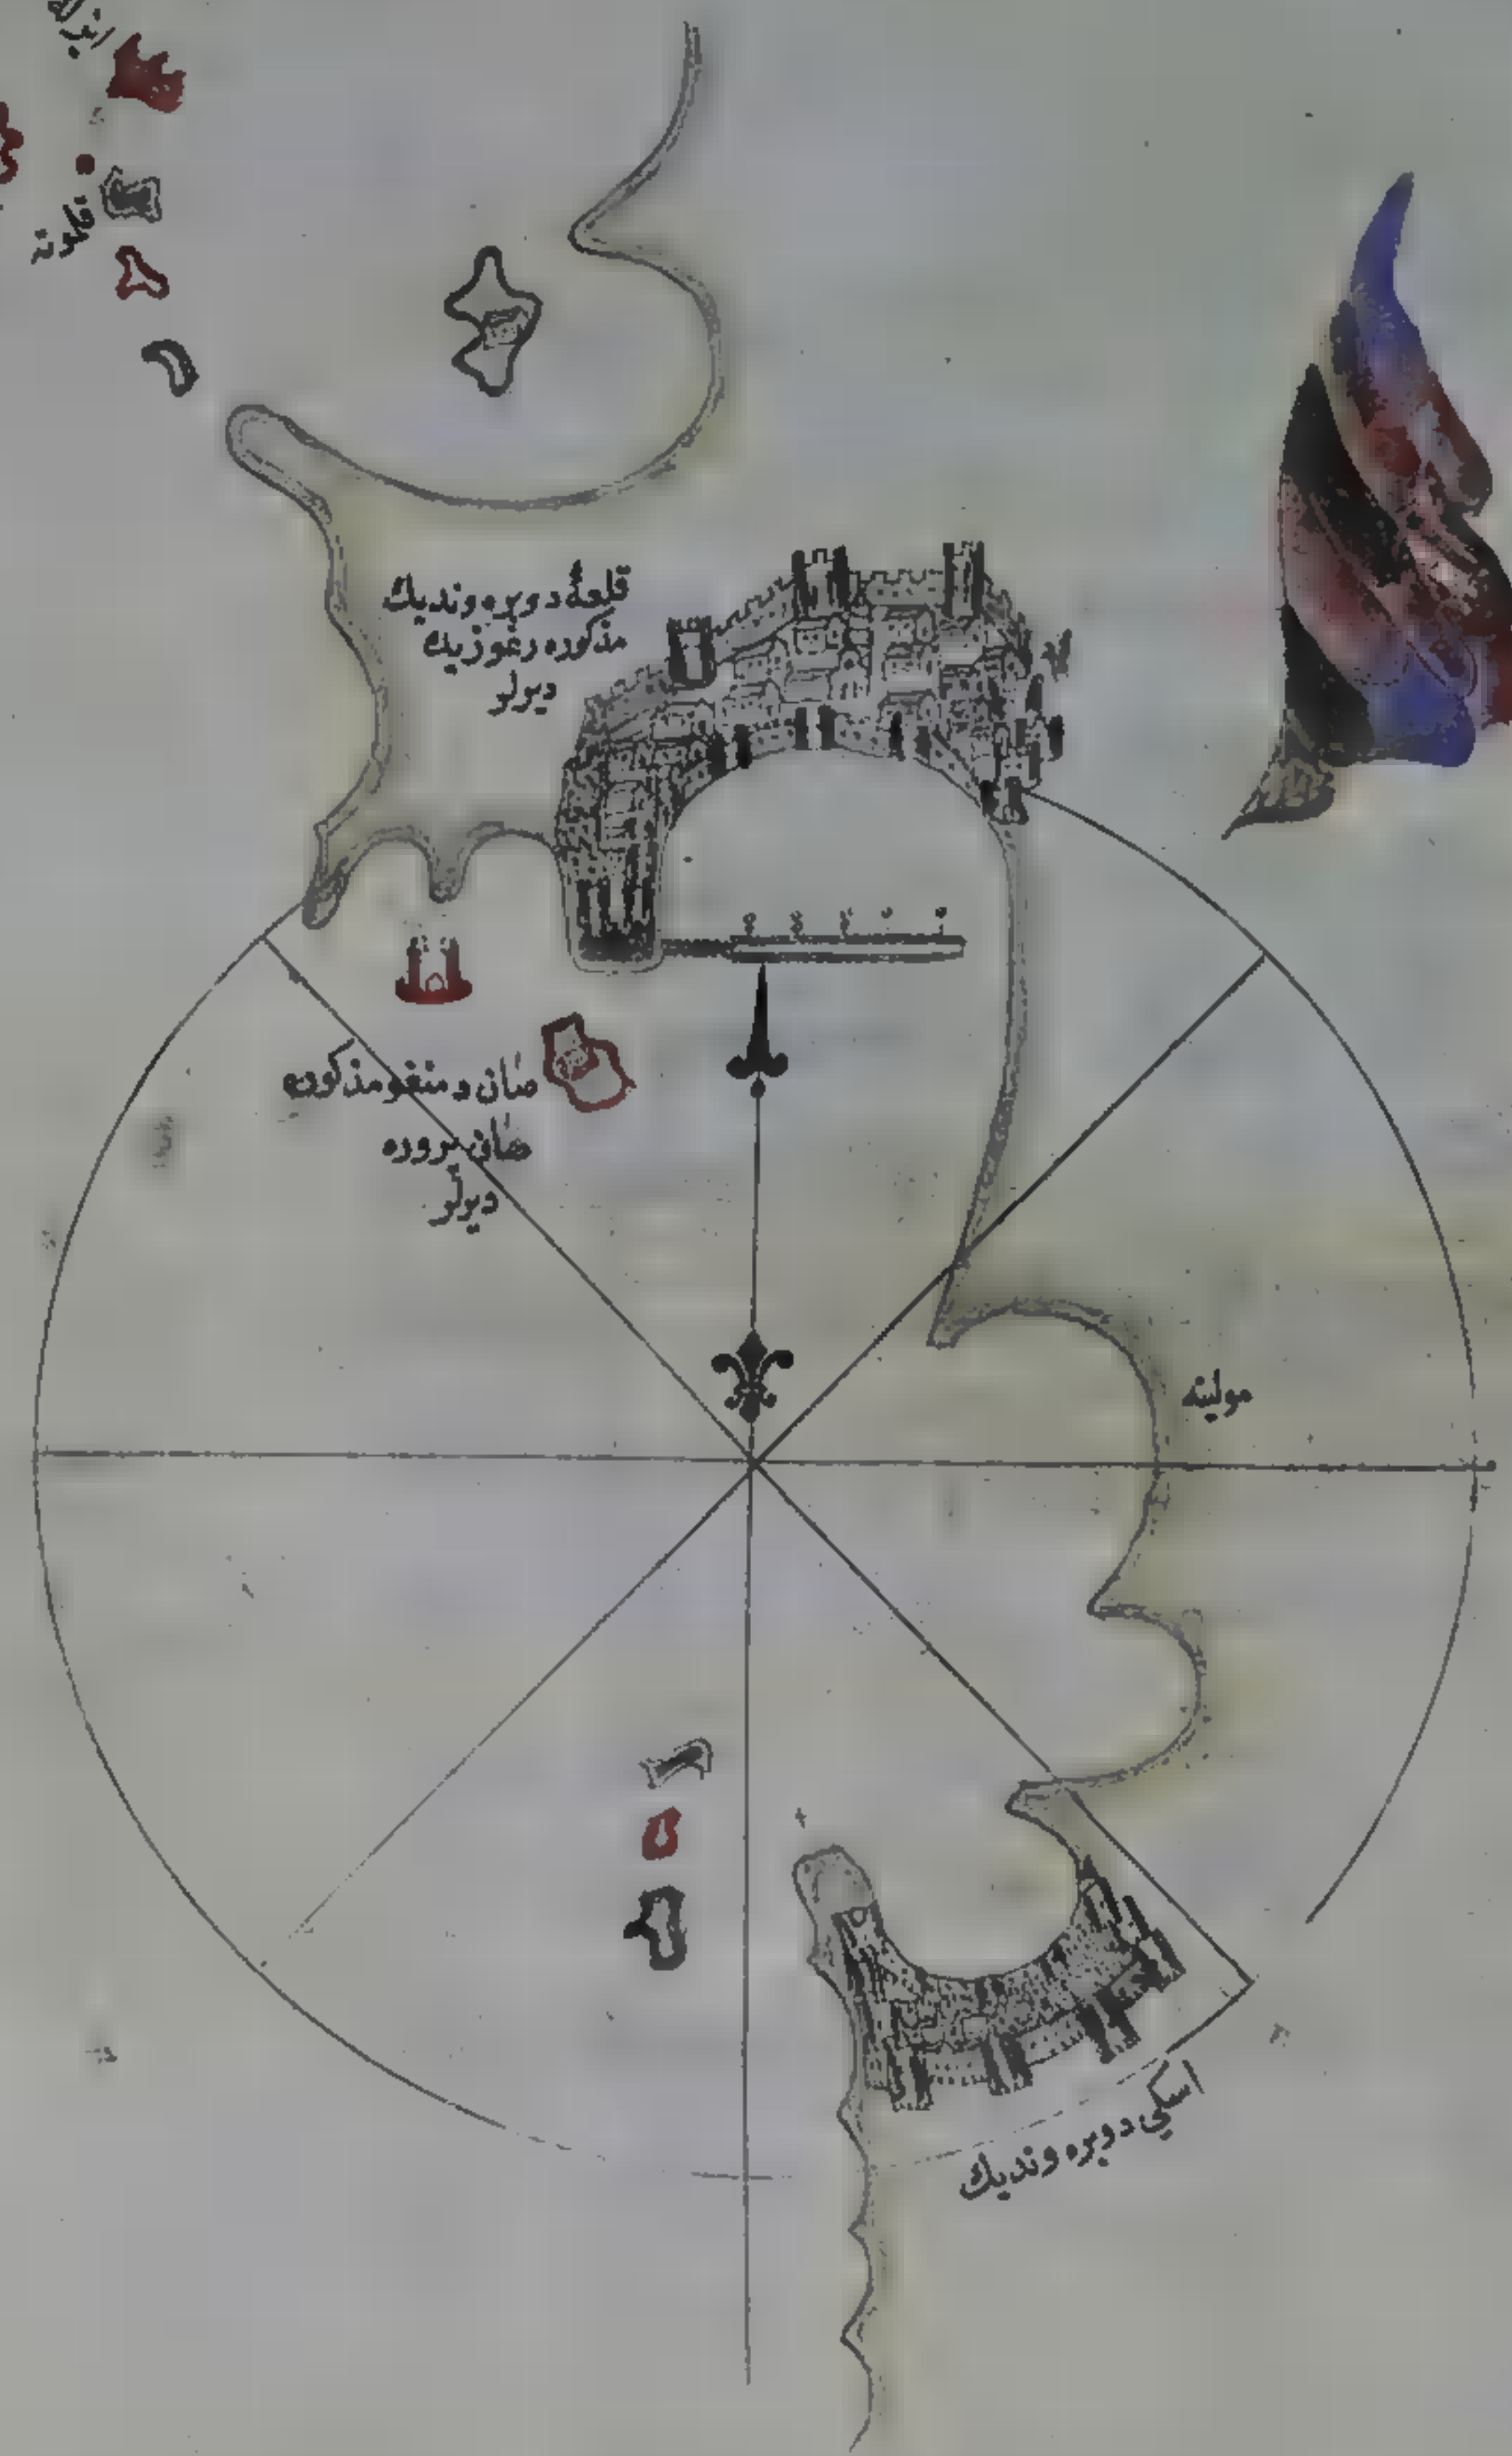 قلونه
قلعهٔ دوبره وندیك
مذكوره رغوزیك
دیرلر
صان دمنغو مذكوره
صان پروره
دیرلر
مولینه
اسكي دوبره وندیك